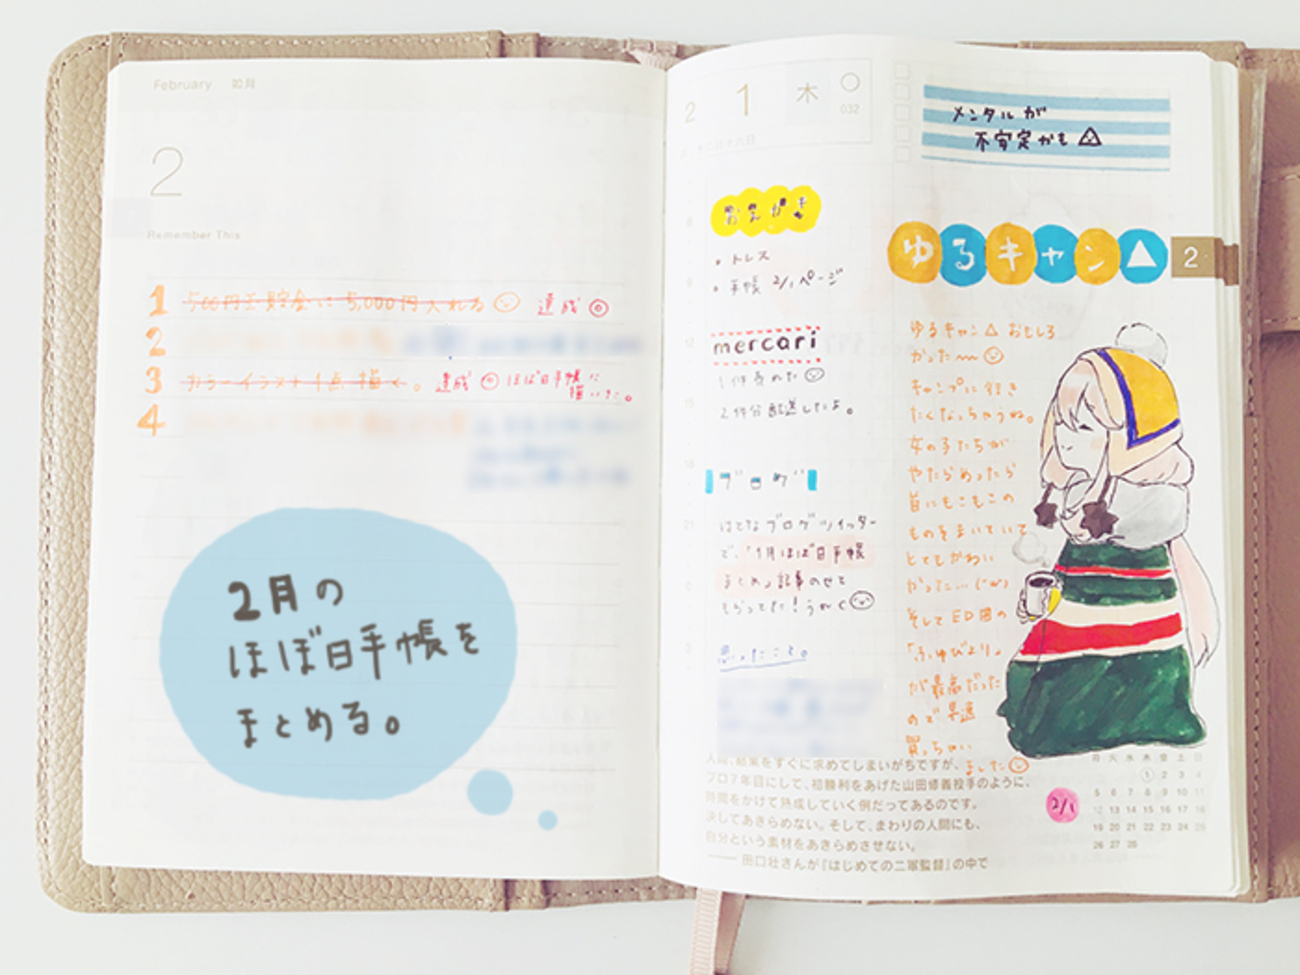 February 如月
2
Remember This
1 500円玉貯金に5,000円入れる 達成
2
3 カラーイラスト1点描く。達成 ほぼ日手帳に
描いた。
4
2月の
ほぼ日手帳を
まとめる。
2 1 木
032
メンタルが
不安定かも
おえかき
・トレス
・手帳 2/1ページ
mercari
1件売れた
2件分配送したよ。
ブログ
はてなブログツイッター
で、「1月ほぼ日手帳
まとめ」記事のせて
もらってた!うれしく
思ったこと。
ゆるキャン△
2
ゆるキャン△おもしろ
かった〜
キャンプに行き
たくなっちゃうね。
女の子たちが
やたらめったら
首にもこもこの
ものをまいていて
とてもかわい
かった…(´w`)
そしてED曲の
「ふゆびより」
が最高だった
ので早速
買っちゃい
ました
人間、結果をすぐに求めてしまいがちですが、
プロ7年目にして、初勝利をあげた山田修義投手のように、
時間をかけて熟成していく例だってあるのです。
決してあきらめない。そして、まわりの人間にも、
自分という素材をあきらめさせない。
——田口壮さんが『はじめての二軍監督』の中で
2/1
月 火 水 木 金 土 日
1 2 3 4
5 6 7 8 9 10 11
12 13 14 15 16 17 18
19 20 21 22 23 24 25
26 27 28